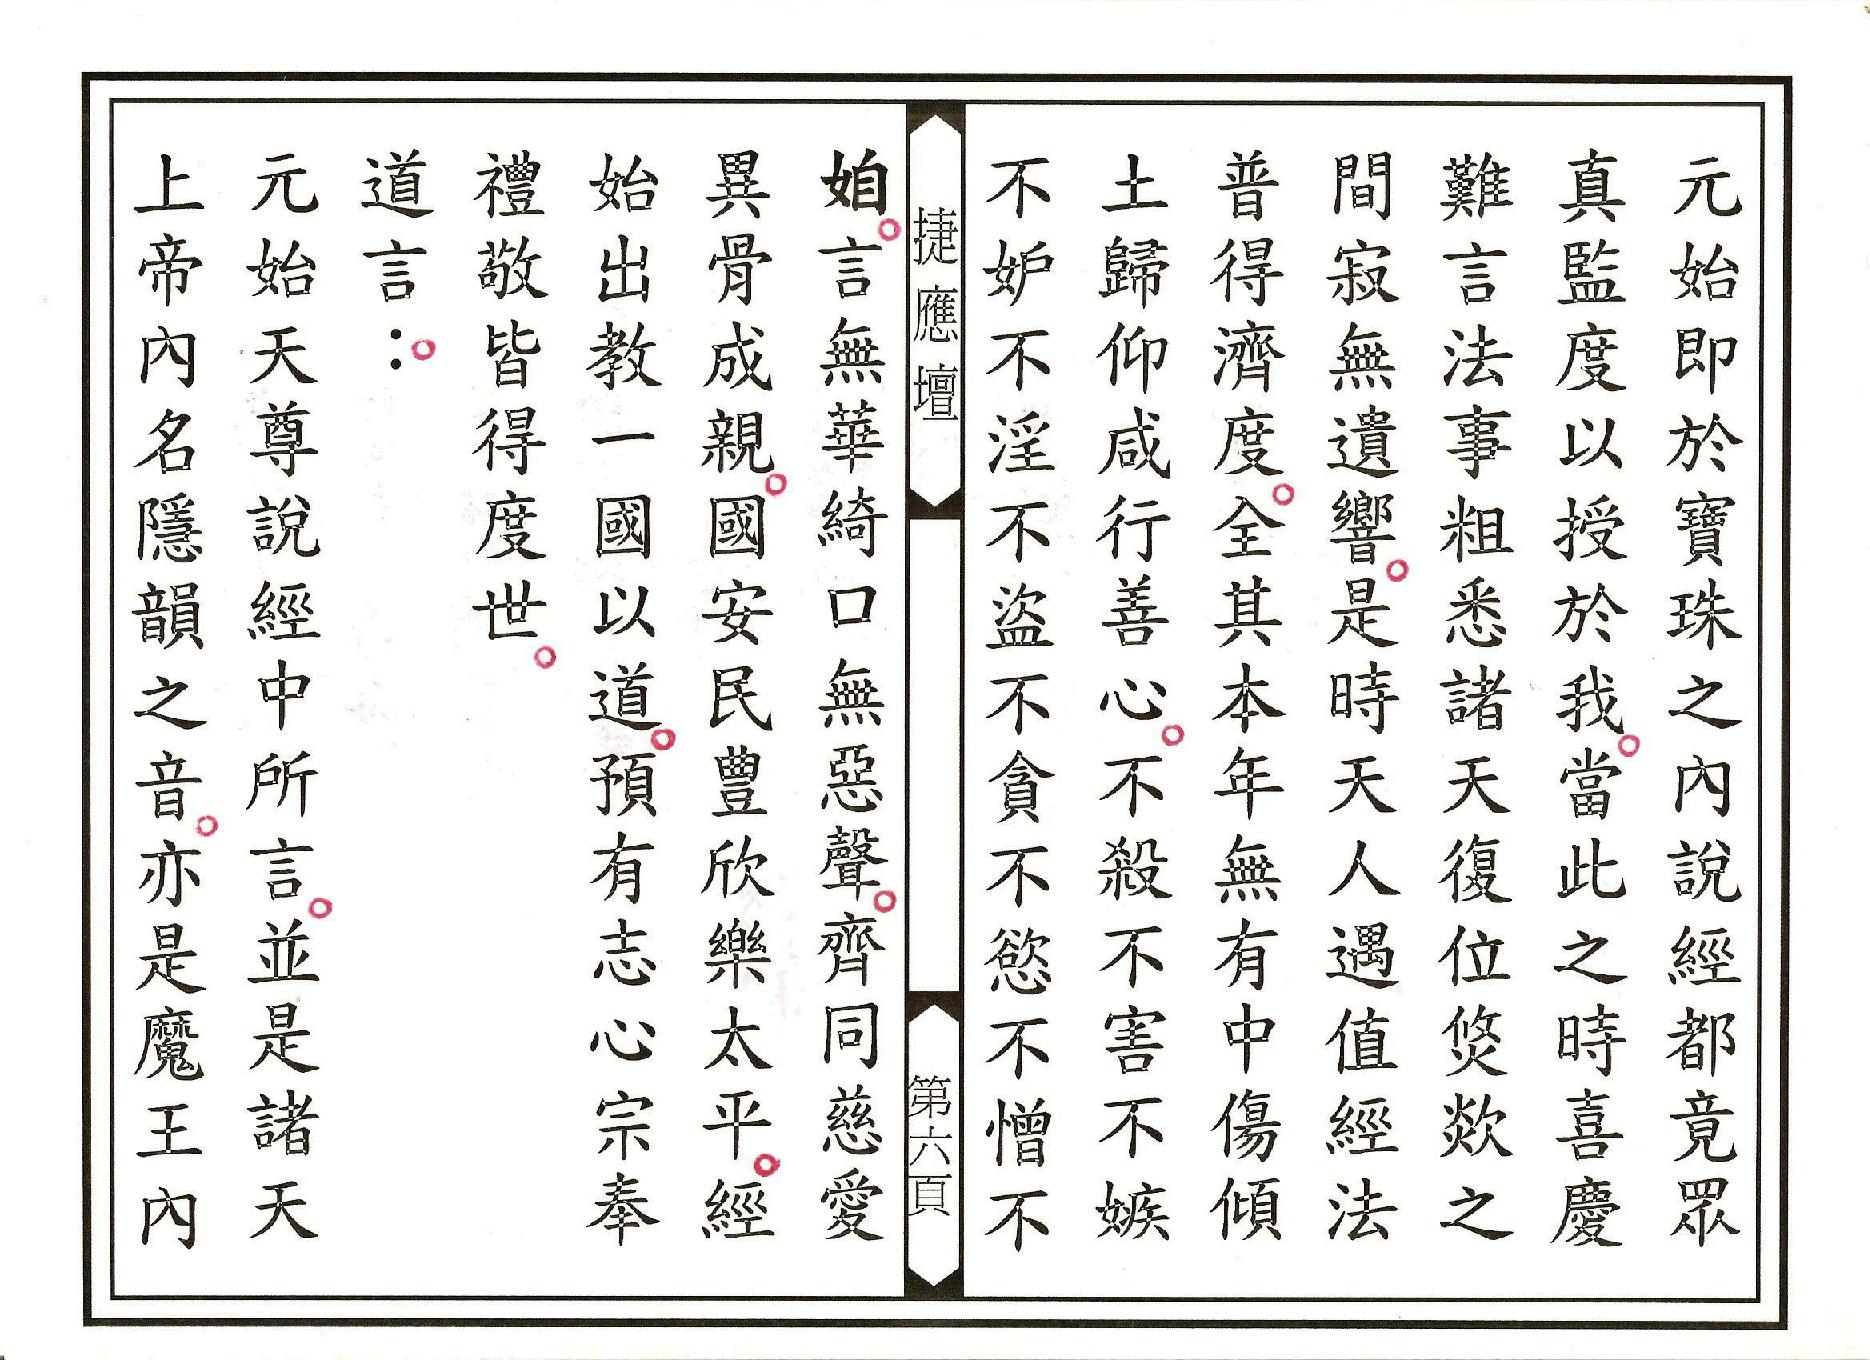 元始即於寶珠之內說經都竟眾
真監度以授於我。當此之時喜慶
難言法事粗悉諸天復位焂欻之
間寂無遺響。是時天人遇值經法
普得濟度。全其本年無有中傷傾
土歸仰咸行善心。不殺不害不嫉
不妒不淫不盜不貪不慾不憎不
捷應壇
第六頁
。言無華綺口無惡聲。齊同慈愛
異骨成親。國安民豐欣樂太平。經
始出教一國以道。預有志心宗奉
禮敬皆得度世。
道言：。
元始天尊說經中所言。並是諸天
上帝內名隱韻之音。亦是魔王內